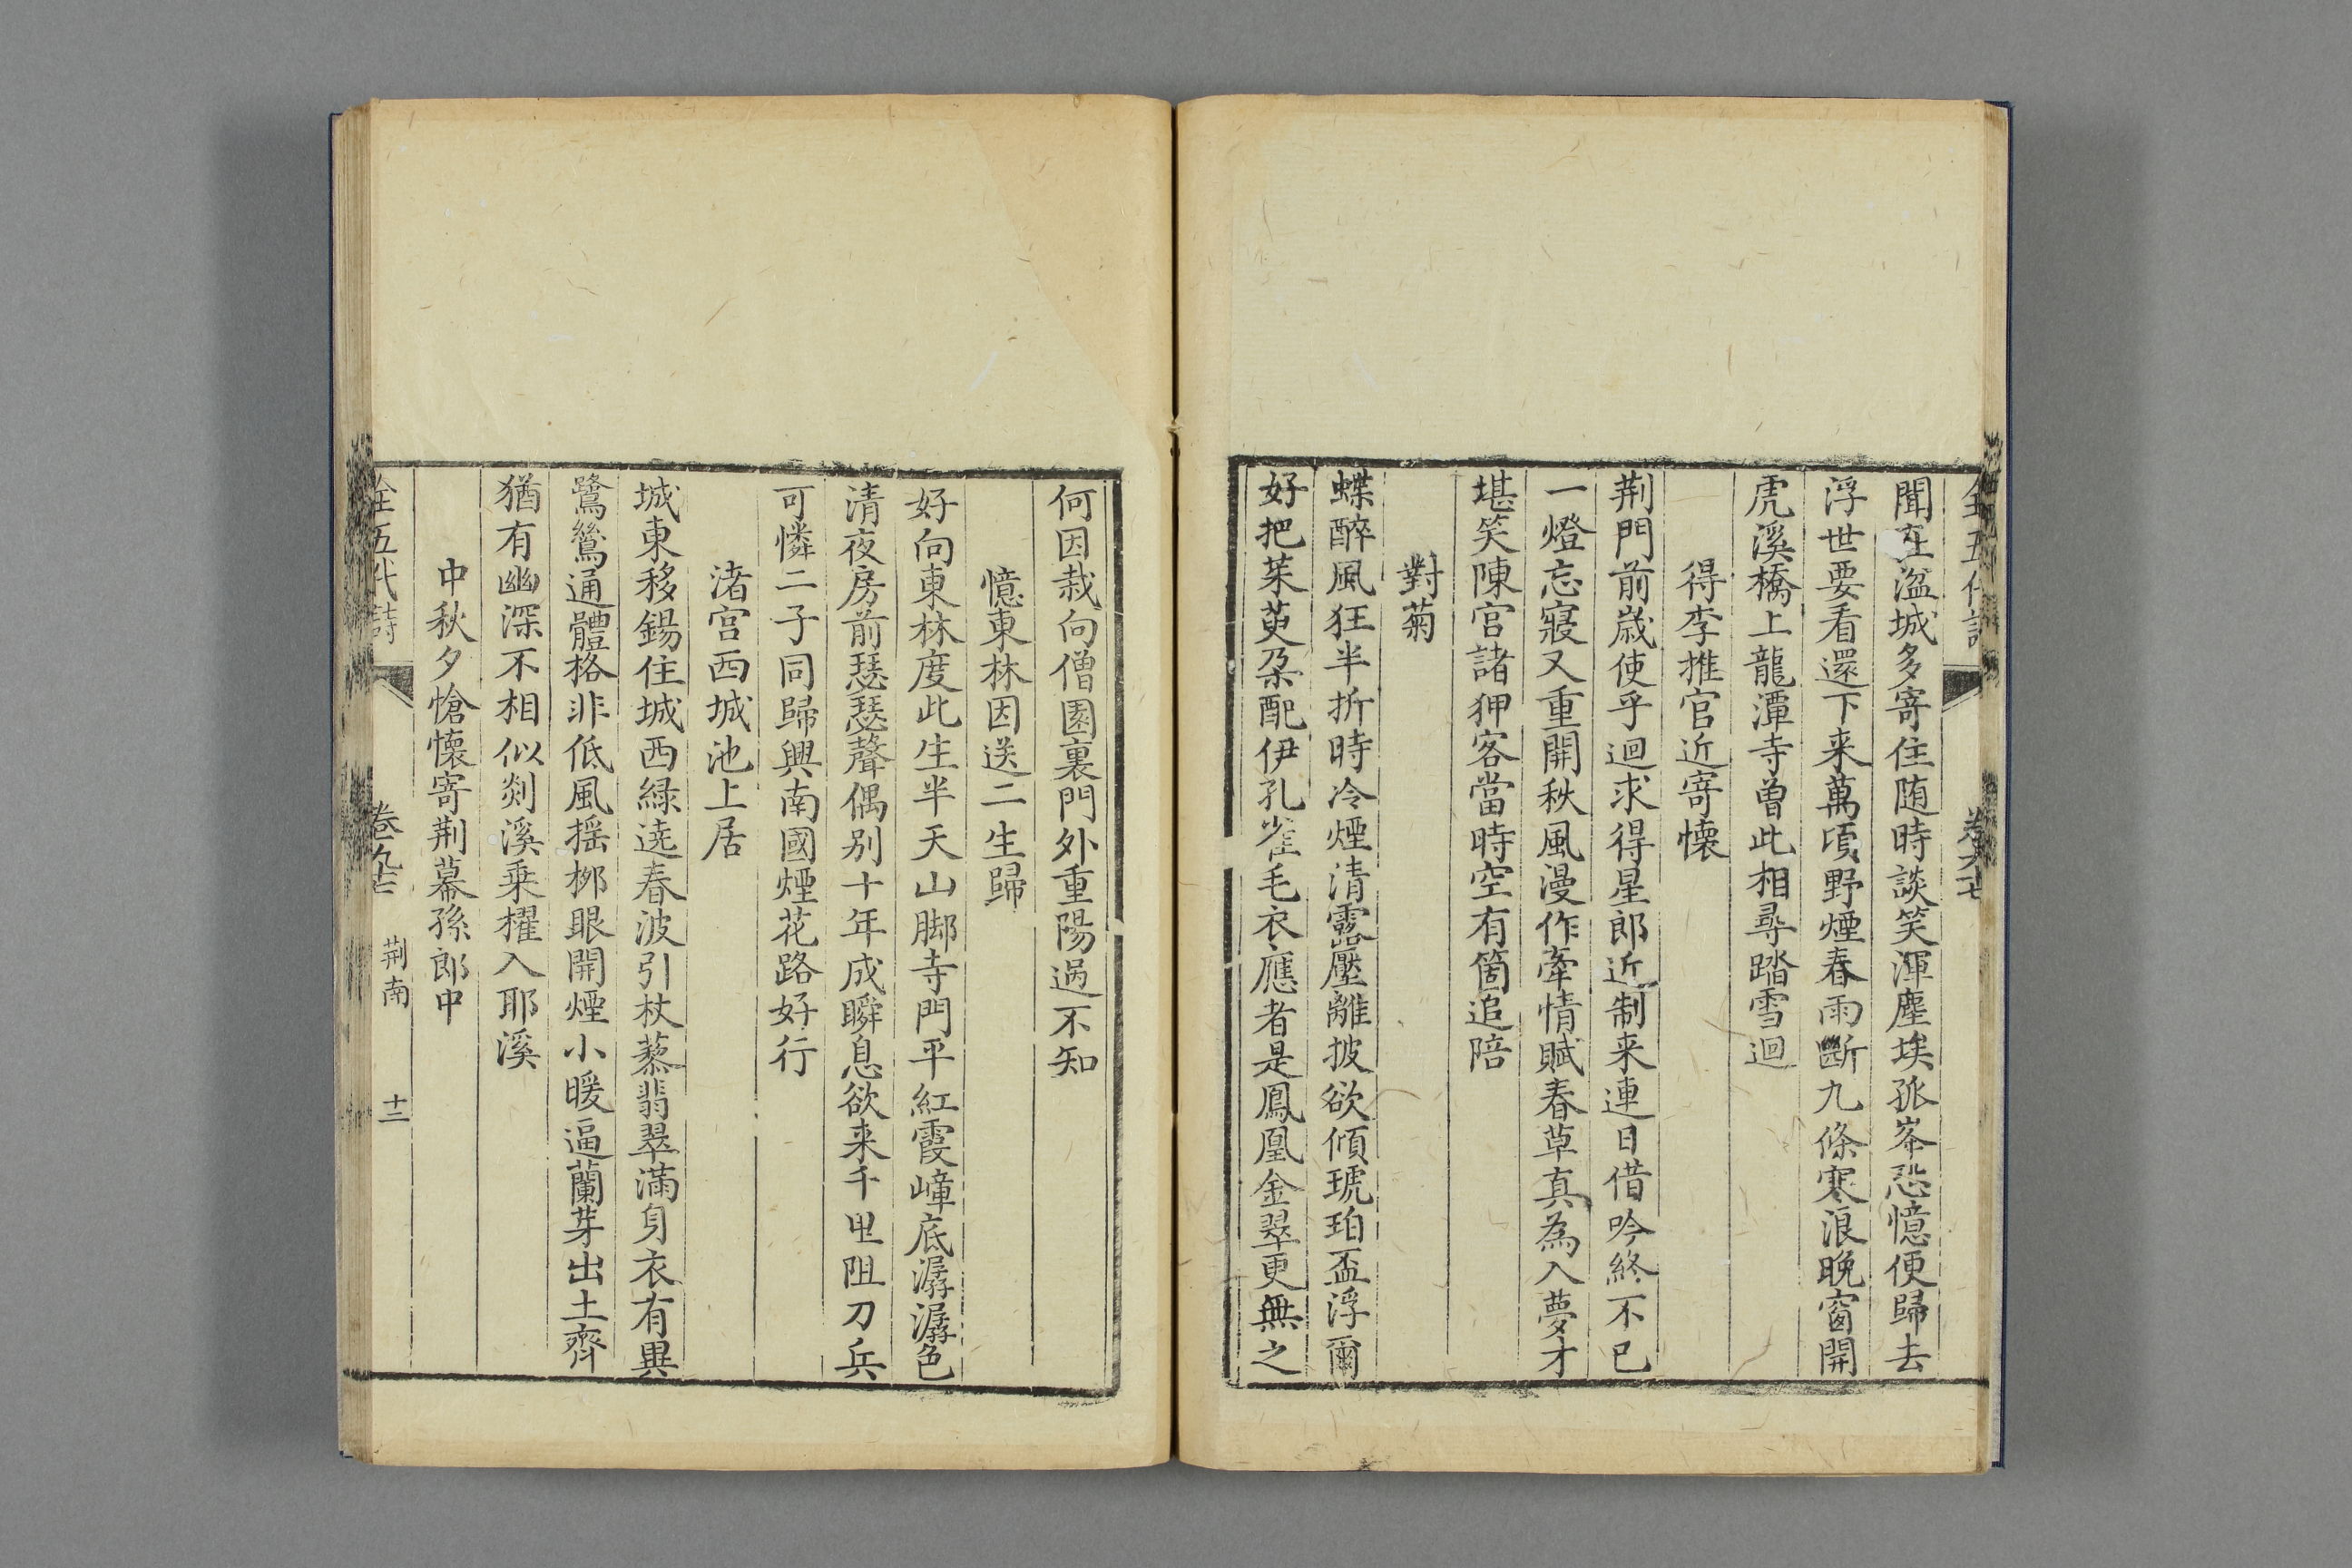 全五代詩
聞在湓城多寄住随時談笑渾塵埃孤峯恐憶便歸去
浮世要看還下来萬頃野煙春雨斷九條寒浪晚窗開
虎溪橋上龍潭寺曾此相尋踏雪迴
得李推官近寄懷
荆門前歲使乎迴求得星郎近制来連日借吟終不已
一燈忘寢又重開秋風漫作牽情賦春草真為入夢才
堪笑陳宮諸狎客當時空有箇追陪
對菊
蝶醉風狂半折時冷煙清露壓離披欲傾琥珀盃浮爾
好把茱萸朶配伊孔雀毛衣應者是鳳凰金翠更無之
何因栽向僧園裏門外重陽過不知
憶東林因送二生歸
好向東林度此生半天山脚寺門平紅霞嶂底潺潺色
清夜房前瑟瑟聲偶别十年成瞬息欲来千里阻刀兵
可憐二子同歸興南國煙花路好行
渚宮西城池上居
城東移錫住城西綠遶春波引杖藜翡翠滿身衣有異
鷺鷥通體格非低風摇桞眼開煙小暖逼蘭芽出土齊
猶有幽深不相似剡溪乗櫂入耶溪
中秋夕愴懷寄荆幕孫郎中
全五代詩
荆南
十二